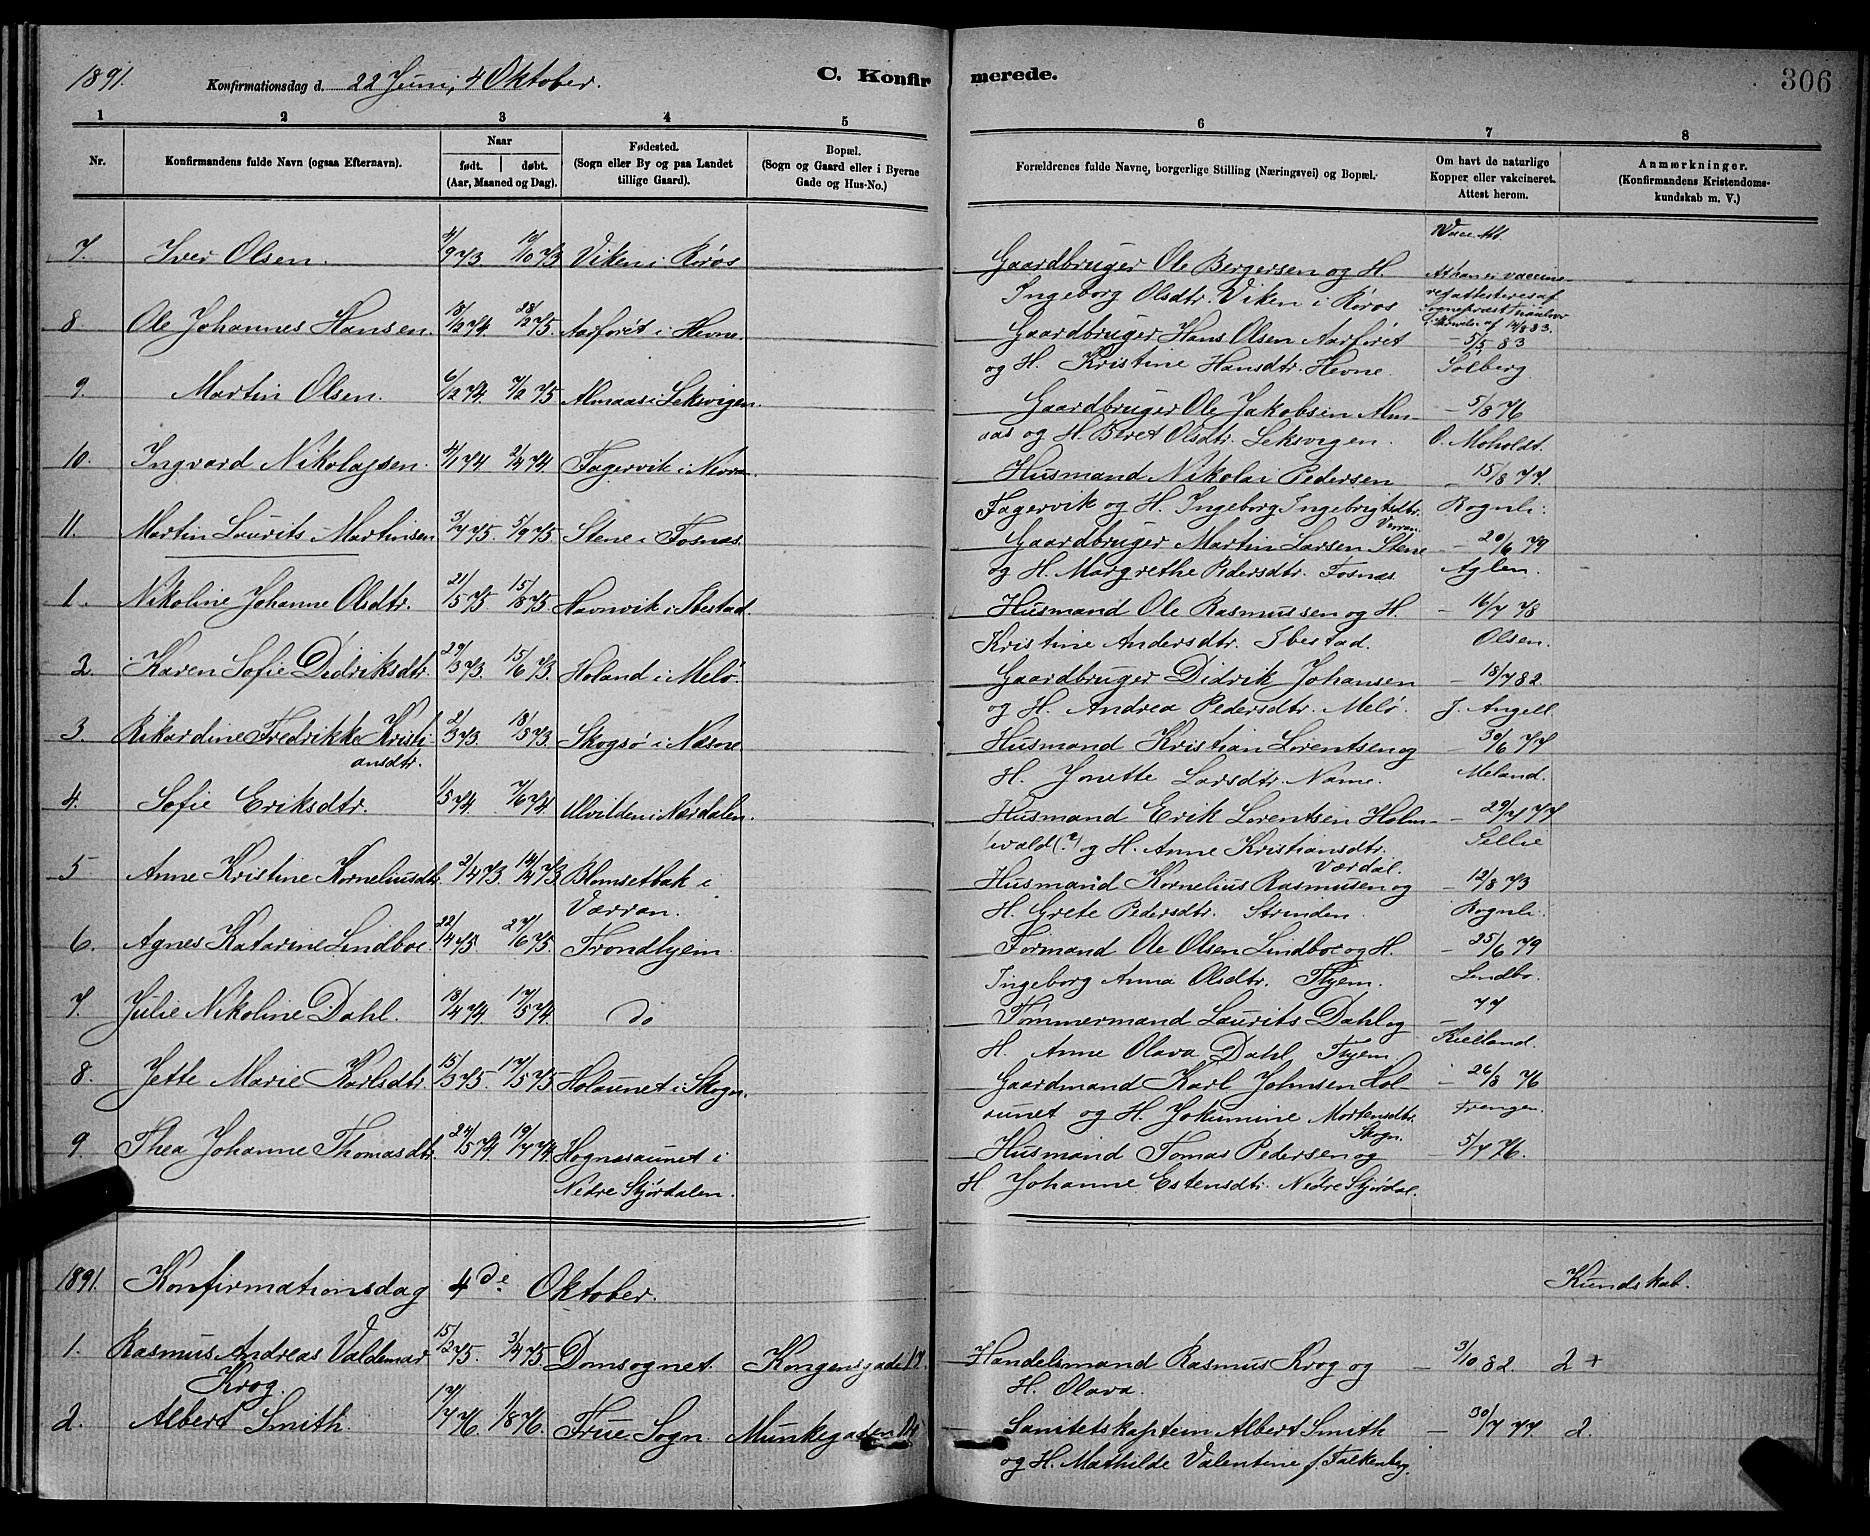 1891.
Konfirmationsdag d. 22 Juni, 4 Oktober.
C. Konfirmerede.
306
1 2 3 4 5 6 7 8
Nr.
Konfirmandens fulde Navn (ogsaa Efternavn).
Naar
født. døbt.
(Aar, Maaned og Dag).
Fødested.
(Sogn eller By og paa Landet
tillige Gaard).
Bopæl.
(Sogn og Gaard eller i Byerne
Gade og Hus-No.)
Forældrenes fulde Navne, borgerlige Stilling (Næringsvei) og Bopæl.
Om havt de naturlige
Kopper eller vakcineret.
Attest herom.
Anmærkninger.
(Konfirmandens Kristendoms-
kundskab m. V.)
Vacc. Att.
7. Iver Olsen. Viken i Røros
Gaardbruger Ole Bergersen og H.
Ingeborg Olsdtr. Viken i Røros
At han er vaccine-
ret attesteres af
8. Ole Johannes Hansen. 28/2 75. Aarforet i Hevne.
Gaardbruger Hans Olsen Aarforet — 5/5 83
og H. Kristine Hansdtr. Hevne. Solberg
9. Martin Olsen. 6/12 74. 7/2 75 Almaas i Leksvigen.
Gaardbruger Ole Jakobsen Alm- — 5/8 76
aas og H. Beret Olsdtr. Leksvigen. O. Moholdt.
10. Ingvard Nikolajsen. 4/1 74 2/4 74. Fagervik i
Husmand Nikolai Pedersen — 15/8 77.
Fagervik og H. Ingeborg Ingebrigtsdtr. Rognli.
Værran.
11. Martin Laurits Martinsen 3/7 75. 5/9 75. Stene i Fosnæs.
Gaardbruger Martin Larsen Stene — 20/6 79
og H. Margrethe Pedersdtr. Fosnæs. Aglen.
1. Nikoline Johanne Olsdtr. 21/5 75 15/8 75. Havnvik i Ibestad.
Husmand Ole Rasmussen og H. — 16/7 78
Kristine Andersdtr. Ibestad. Olsen.
2. Karen Sofie Didriksdtr. 29/3 73. 15/6 73. Holand i Melø.
Gaardbruger Didrik Johansen — 18/7 82.
og H. Andrea Pedersdtr. Melø. J. Angell
3. Rikardine Fredrikke Kristi- 2/3 73. 18/5 73. Skogsø i Næsne
ansdtr.
Husmand Kristian Lorentsen og — 30/6 77
H. Jonette Larsdtr. Næsne. Meland.
4. Sofie Eriksdtr. 1/5 74. 7/6 74. Ulvilden i Værdalen.
Husmand Erik Lorentsen Holm- — 29/7 77
wald(?) og H. Anne Kristiansdtr. Sellie
Værdal.
5 Anne Kristine Korneliusdtr. 2/4 73. 14/4 73 Blomsetbak i
Værran.
Husmand Kornelius Rasmusen og — 12/8 73
H. Grete Pedersdtr. Strinden. Rognli.
6. Agnes Katarine Lindboe 22/4 75. 27/6 75. Trondhjem.
Formand Ole Olsen Lindboe og H. — 25/6 79
Ingeborg Anna Olsdtr. Thjem. Lindbo.
7. Julie Nikoline Dahl. 13/4 74. 17/5 74. do
Tømmermand Laurits Dahl og — 77
H. Anne Olava Dahl Thjem. Kielland.
8. Jette Marie Karlsdtr. 15/3 75. 17/5 75 Holaunet i Skogn.
Gaardmand Karl Johnsen Hol- — 26/8 76
aunet og H. Jokumine Mortensdtr.
Skogn.
9. Thea Johanne Thomasdtr. 24/5 74 19/7 74. Hognesaunet i
Nedre Stjørdalen.
Husmand Tomas Pedersen og — 5/7 76.
H. Johanne Estensdtr. Nedre Stjørdal.
1891. Konfirmationsdag 4de Oktober. Kundskab.
1. Rasmus Andreas Valdemar 15/2 75. 3/4 75 Domsognet. Kongensgade 17.
Krog.
Handelsmand Rasmus Krog og — 3/10 82 2+
H. Olava.
2. Albert Smith. 17/7 76. 1/8 76. Frue Sogn. Munkegaden 14
Sanitetskaptein Albert Smith — 30/7 77. 2.
og H. Mathilde Valentine f. Falkenberg.